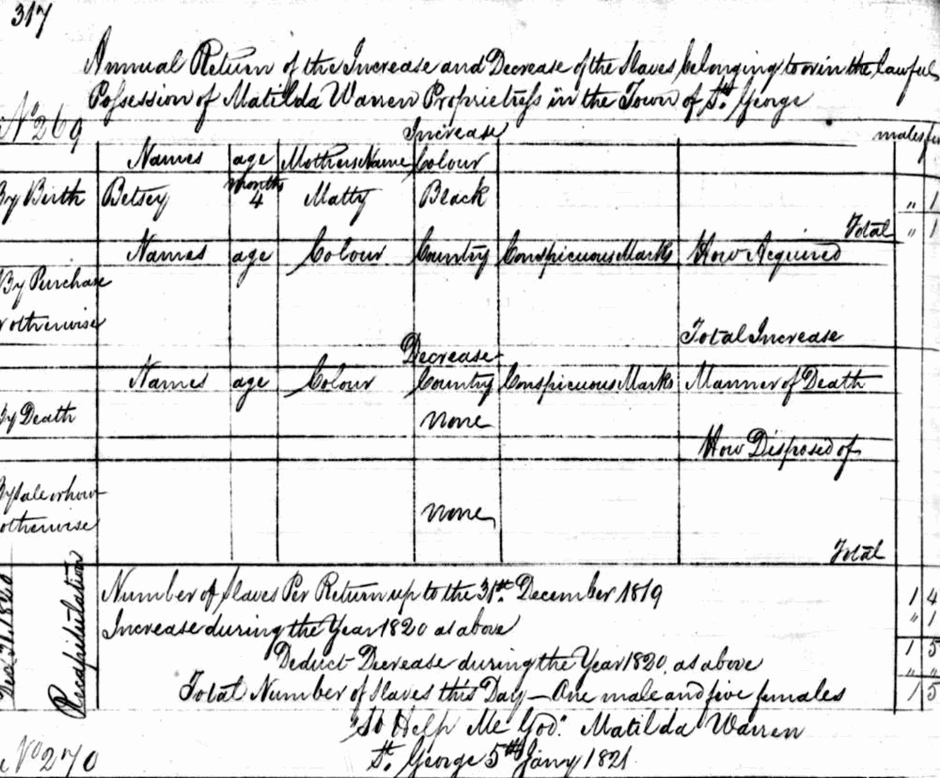 317
Annual Return of the Increase and Decrease of the Slaves belonging to or in the lawful
Possession of Matilda Warren Proprietress in the Town of St. George
No 269
Increase
males fe
Names age Mothers Name Colour
By Birth Betsey months 4 Matty Black " 1
Total " 1
Names age Colour Country Conspicuous Marks How Acquired
By Purchase
or otherwise
Total Increase
Decrease
Names age Colour Country Conspicuous Marks Manner of Death
By Death none
How Disposed of
By Sale or how
otherwise none
Total
Dec 31. 1820
Recapitulation
Number of Slaves Per Return up to the 31st. December 1819 1 4
Increase during the Year 1820 as above " 1
1 5
Deduct Decrease during the Year 1820 as above " "
Total Number of Slaves this Day — One male and five females 1 5
"So Help Me God" Matilda Warren
St. George 5th Jany 1821
No 270